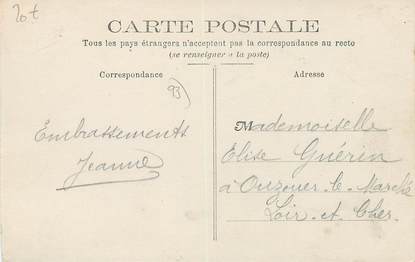 20t
CARTE POSTALE
Tous les pays étrangers n'acceptent pas la correspondance au recto
(se renseigner à la poste)
Correspondance
Adresse
93)
Embrassements
Jeanne
Mademoiselle
Elise Guérin
à Ouzouer-le-Marché
Loir-et-Cher.